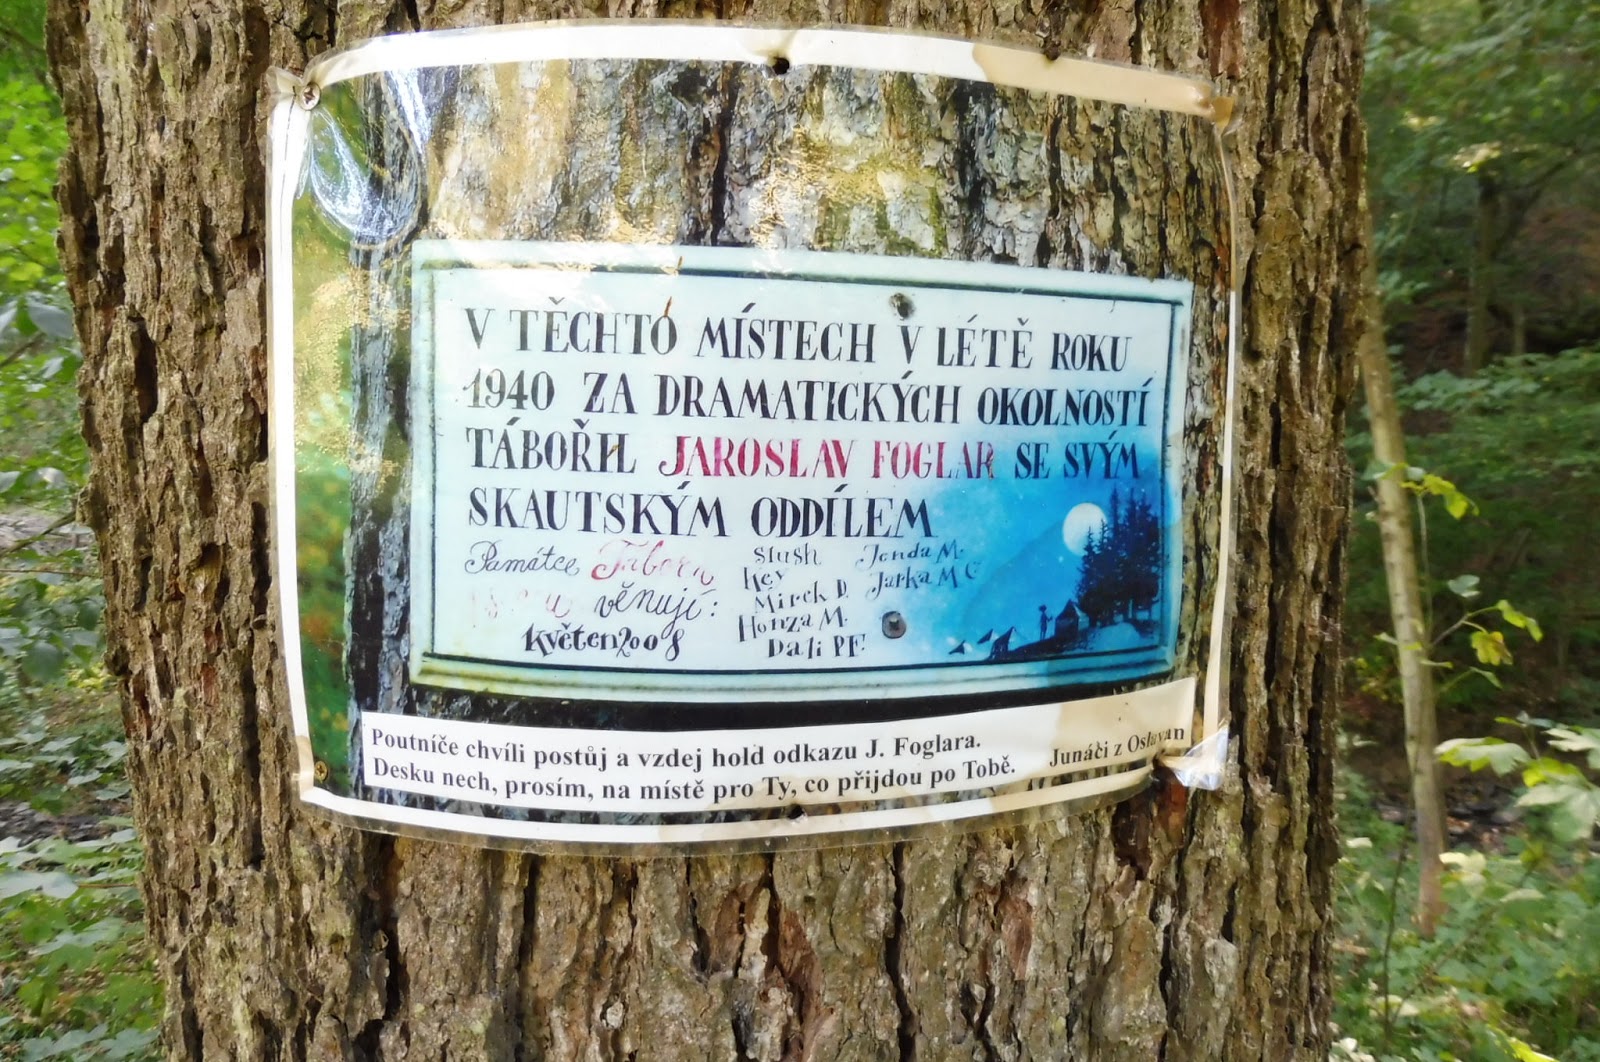 V TĚCHTO MÍSTECH V LÉTĚ ROKU
1940 ZA DRAMATICKÝCH OKOLNOSTÍ
TÁBOŘIL JAROSLAV FOGLAR SE SVÝM
SKAUTSKÝM ODDÍLEM
Památce
věnují:
Květen 2008
Slush
Key
Mirek D.
Honza M.
Dali PF.
Jenda M.
Jarka M C
Poutníče chvíli postůj a vzdej hold odkazu J. Foglara.
Desku nech, prosím, na místě pro Ty, co přijdou po Tobě.
Junáci z Oslavan